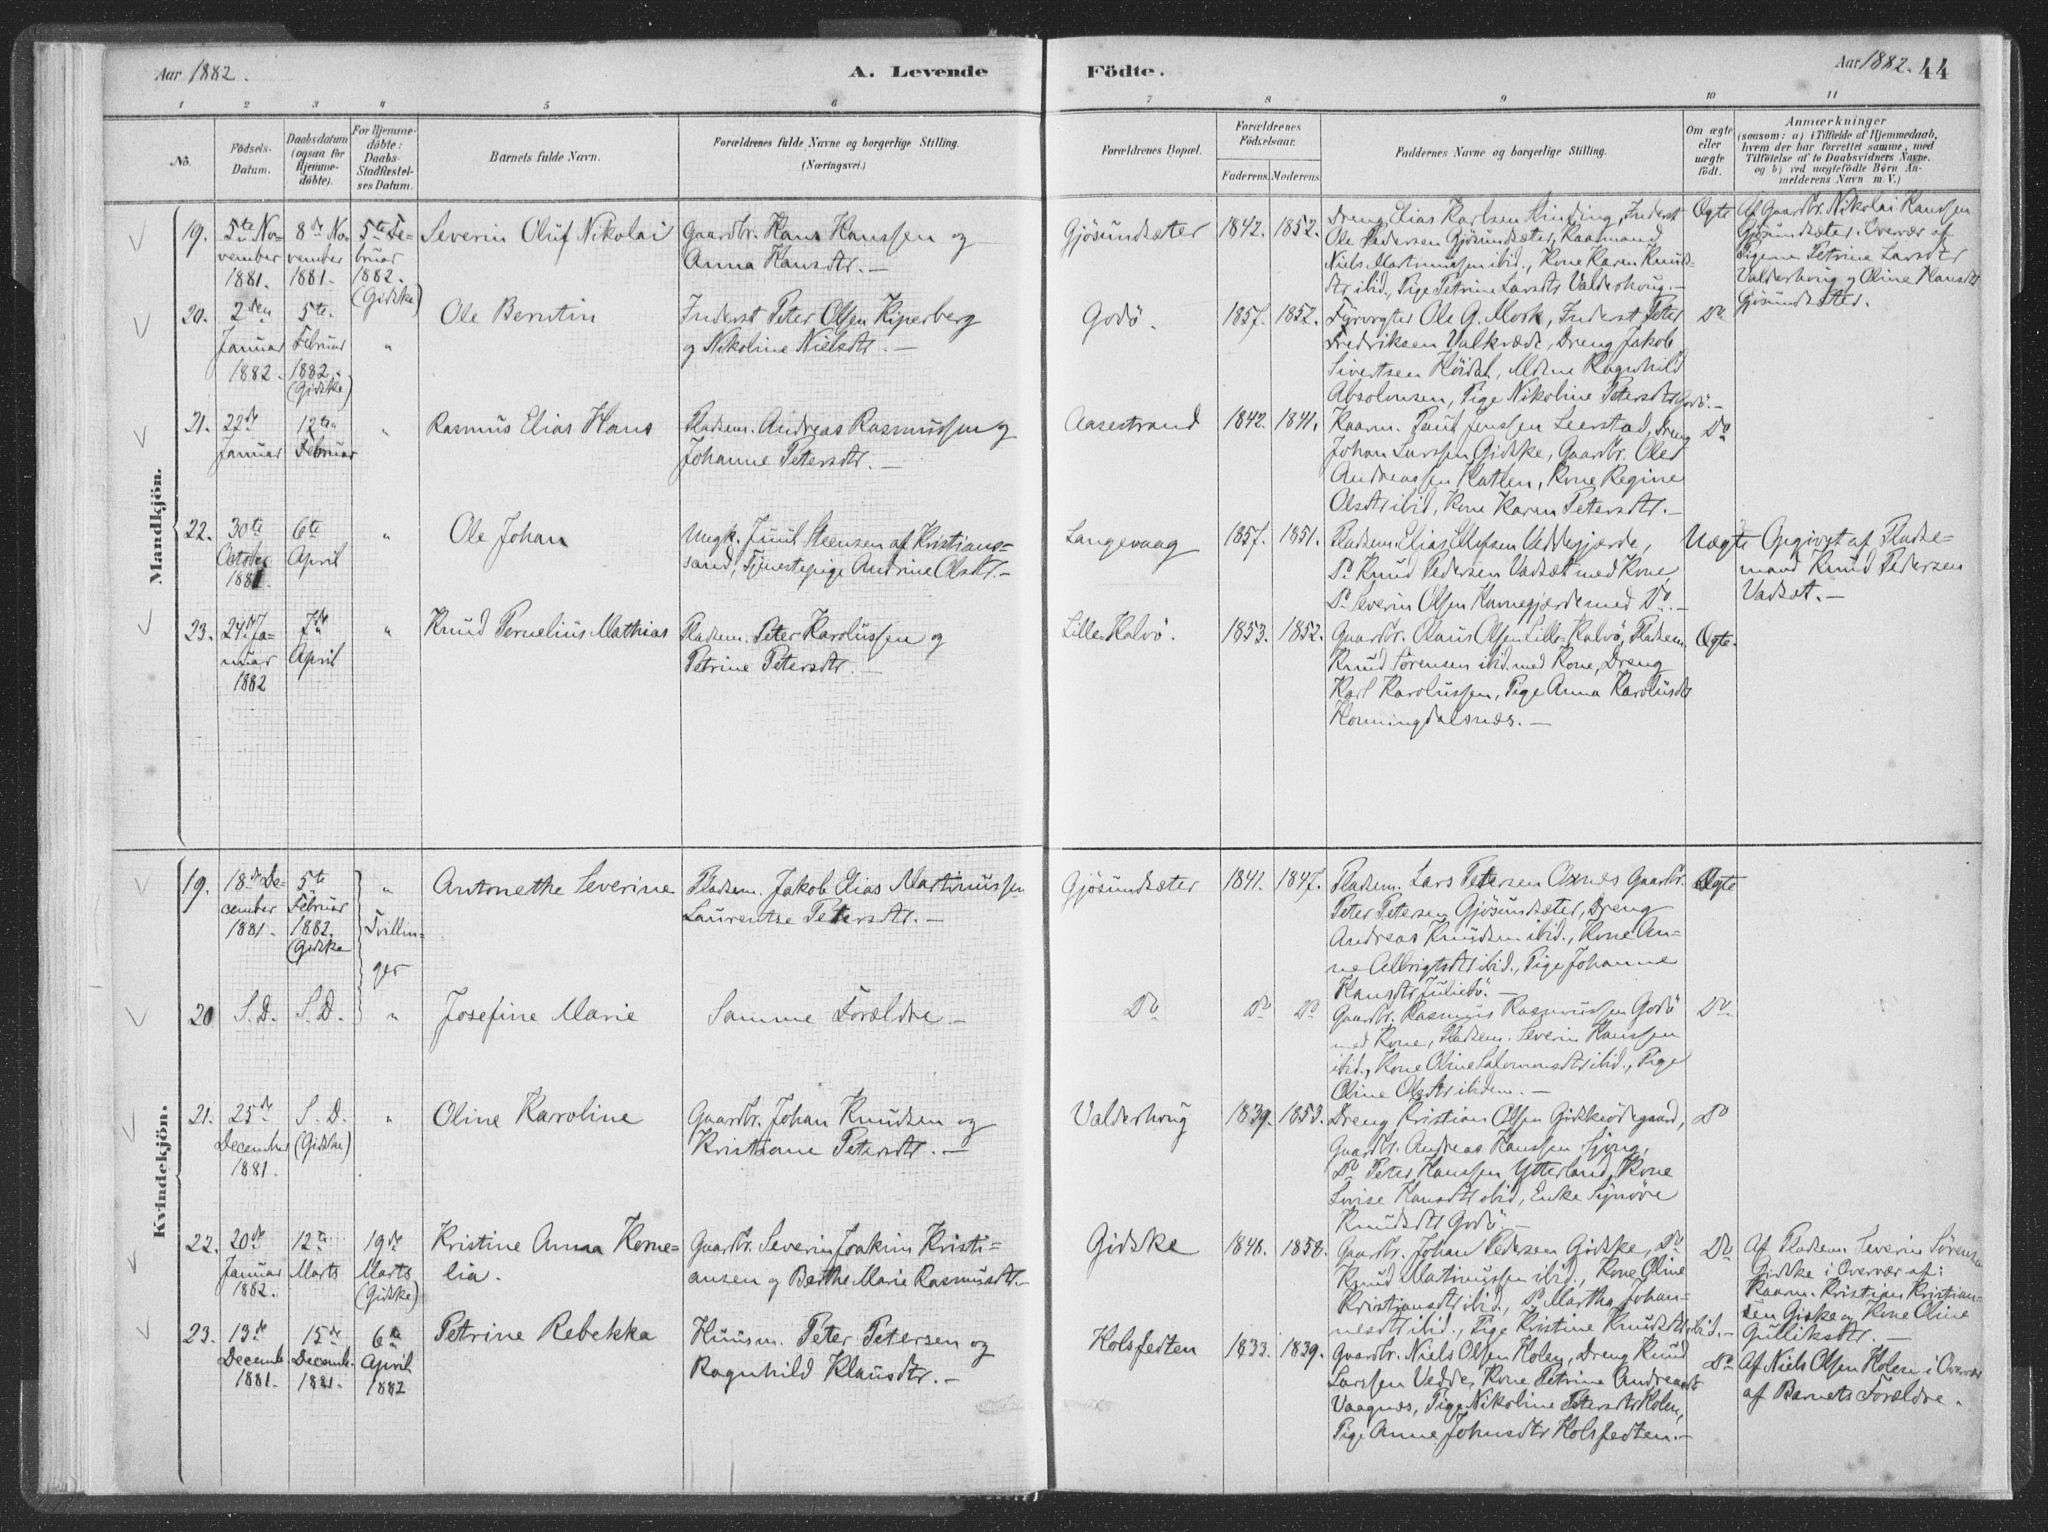 Aar 1882.
A. Levende
Födte.
Aar 1882. 44
1 2 3 4 5 6 7 8 9 10 11
No.
Födsels-
Datum.
Daabsdatum
(ogsaa for
Hjemme-
döbte).
For Hjemme-
döbte:
Daabs-
Stadfæstel-
ses Datum.
Barnets fulde Navn.
Forældrenes fulde Navne og borgerlige Stilling.
(Næringsvei.)
Forældrenes Bopæl.
Forældrenes
Födselsaar.
Faderens. Moderens.
Faddernes Navne og borgerlige Stilling.
Om ægte
eller
uægte
födt.
Anmærkninger
(saasom: a) i Tilfælde af Hjemmedaab,
hvem der har forrettet samme, med
Tilföielse af to Daabsvidners Navne,
og b) ved uægtefödte Börn An-
melderens Navn m. V.)
Mandkjön.
19.
5te No-
vember
1881.
8de No-
vember
1881.
5te Fe-
bruar
1882.
(Gidske)
Severin Oluf Nikolai
Gaardbr. Hans Hanssen og
Anna Hansdtr. —
Gjösundsæter
1842. 1852.
Dreng Elias Karlsen Hinding, Inderst
Ole Pedersen Gjösundsæter, Kaarmand
Niels Martinussen ibid., Kone Karen Knuds-
dtr ibid., Pige Petrine Larsdtr Valderhoug. —
Ægte
Af Gaardbr. Nikolai Hanssen
Gjösundsæter i Overvær af
Pigerne Petrine Larsdtr
Valderhoug og Oline Hansdtr
Gjösundsæter.
20.
2den
Januar
1882.
5te
Februar
1882.
(Gidske)
"
Ole Berntin
Inderst Peter Olsen Kiperberg
og Nikoline Nielsdtr. —
Godö.
1857. 1852.
Fyrvogter Ole G. Mork, Inderst Peter
Fredriksen Valkvæde, Dreng Jakob
Sivertsen Höidal, Madme Ragnhild
Absolonsen, Pige Nikoline Petersdtr Godö. —
Do
21.
22de
Januar
12te
Februar
"
Rasmus Elias Hans
Pladsem. Andreas Rasmussen og
Johanne Petersdtr. —
Aasestrand
1842. 1841.
Kaarm. Paul Jenssen Leerstad, Dreng
Johan Larssen Gidske, Gaardbr. Oled
Andreassen Hatlen, Kone Regine
Olsdtr ibid, Kone Karen Petersdtr. —
Do
22.
30te
October
1881.
6te
April
"
Ole Johan
Ungk. Juul Steensen af Kristians-
sand, Tjenestepige Andrine Olsdtr. —
Langevaag
1857. 1851.
Pladsem. Elias Olsen Veddegjærde,
Do Knud Pedersen Vadsæt med Kone,
Do Severin Olsen Havnegjærde med Do. —
Uægte
Opgivet af Pladse-
mand Knud Pedersen
Vadsæt. —
23.
24de Ja-
nuar
1882
7de
April
"
Knud Pernelius Mathias
Pladsem. Peter Karolussen og
Petrine Petersdtr. —
Lille Kalvö.
1853. 1852.
Gaardbr. Olaus Olsen Lille-Kalvö, Pladsem.
Knud Sörensen ibid. med Kone, Dreng
Karl Karolussen, Pige Anna Karolusdtr
Honningdalsnæs. —
Ægte.
Kvindekjön.
19.
18de De-
cember
1881.
5te
Februar
1882.
(Gidske
"
Tvillin-
ger
Antonethe Severine
Pladsem. Jakob Elias Martinussen
Laurentse Petersdtr. —
Gjösundsæter
1841. 1847.
Pladsem. Lars Petersen Oxnæs Gaardbr.
Peter Petersen Gjösundsæter, Dreng
Andreas Knudsen ibid., Kone An-
ne Albrigtsdtr ibid., Pige Johanne
Hansdtr Juliebö. —
Ægte
20
S. D.
S. D.
"
Josefine Marie
Samme Forældre —
Do
Do Do
Gaardbr. Rasmus Rasmussen Godö
med Kone, Pladsem. Severin Hanssen
ibid., Kone Oline Salomonsdtr ibid., Pige
Oline Olsdtr ibidem. —
Do.
21.
25de
December
1881.
S. D.
(Gidske)
"
Oline Karoline
Gaardbr. Johan Knudsen og
Kristiane Petersdtr. —
Valderhoug
1839. 1853.
Dreng Kristian Olsen Gidskeödegaard,
Gaardbr. Andreas Hanssen Sjong,
Do Peter Hanssen Ytterland, Kone
Lovise Hansdtr ibid, Enke Synöve
Knudsdtr Godö. —
Do
22.
20de
Januar
1882.
12te
Marts
19de
Marts
(Gidske)
Kristine Anna Korne-
lia.
Gaardbr. Severin Joakim Kristi-
ansen og Berthe Marie Rasmusdtr. —
Gidske
1848. 1858.
Gaardbr. Johan Pedersen Gidske, Do
Knud Martinussen ibid., Kone Oline
Kristiansdtr ibid., Do Martha Johan-
nesdtr ibid., Pige Kristine Knudsdtr ibid. —
Do
Af Pladsem. Severin Sörensen
Gidske i Overvær af:
Kaarm. Kristian Kristian-
sen Giske og Kone Oline
Gulliksdtr. —
23.
13de
Decemb.
1881.
15de
Decemb.
1881.
6te
April
1882
Petrine Rebekka
Huusm. Peter Petersen og
Ragnhild Klausdtr. —
Kolsfedten
1833. 1839.
Gaardbr. Niels Olsen Holen, Dreng Knud
Larssen Vedde, Kone Petrine Andreasdtr
Vaagnæs, Pige Nikoline Petersdtr Holen,
Pige Anne Johnsdtr Kolsfedten. —
Do
Af Niels Olsen Holen i Overvær
af Barnets Forældre.